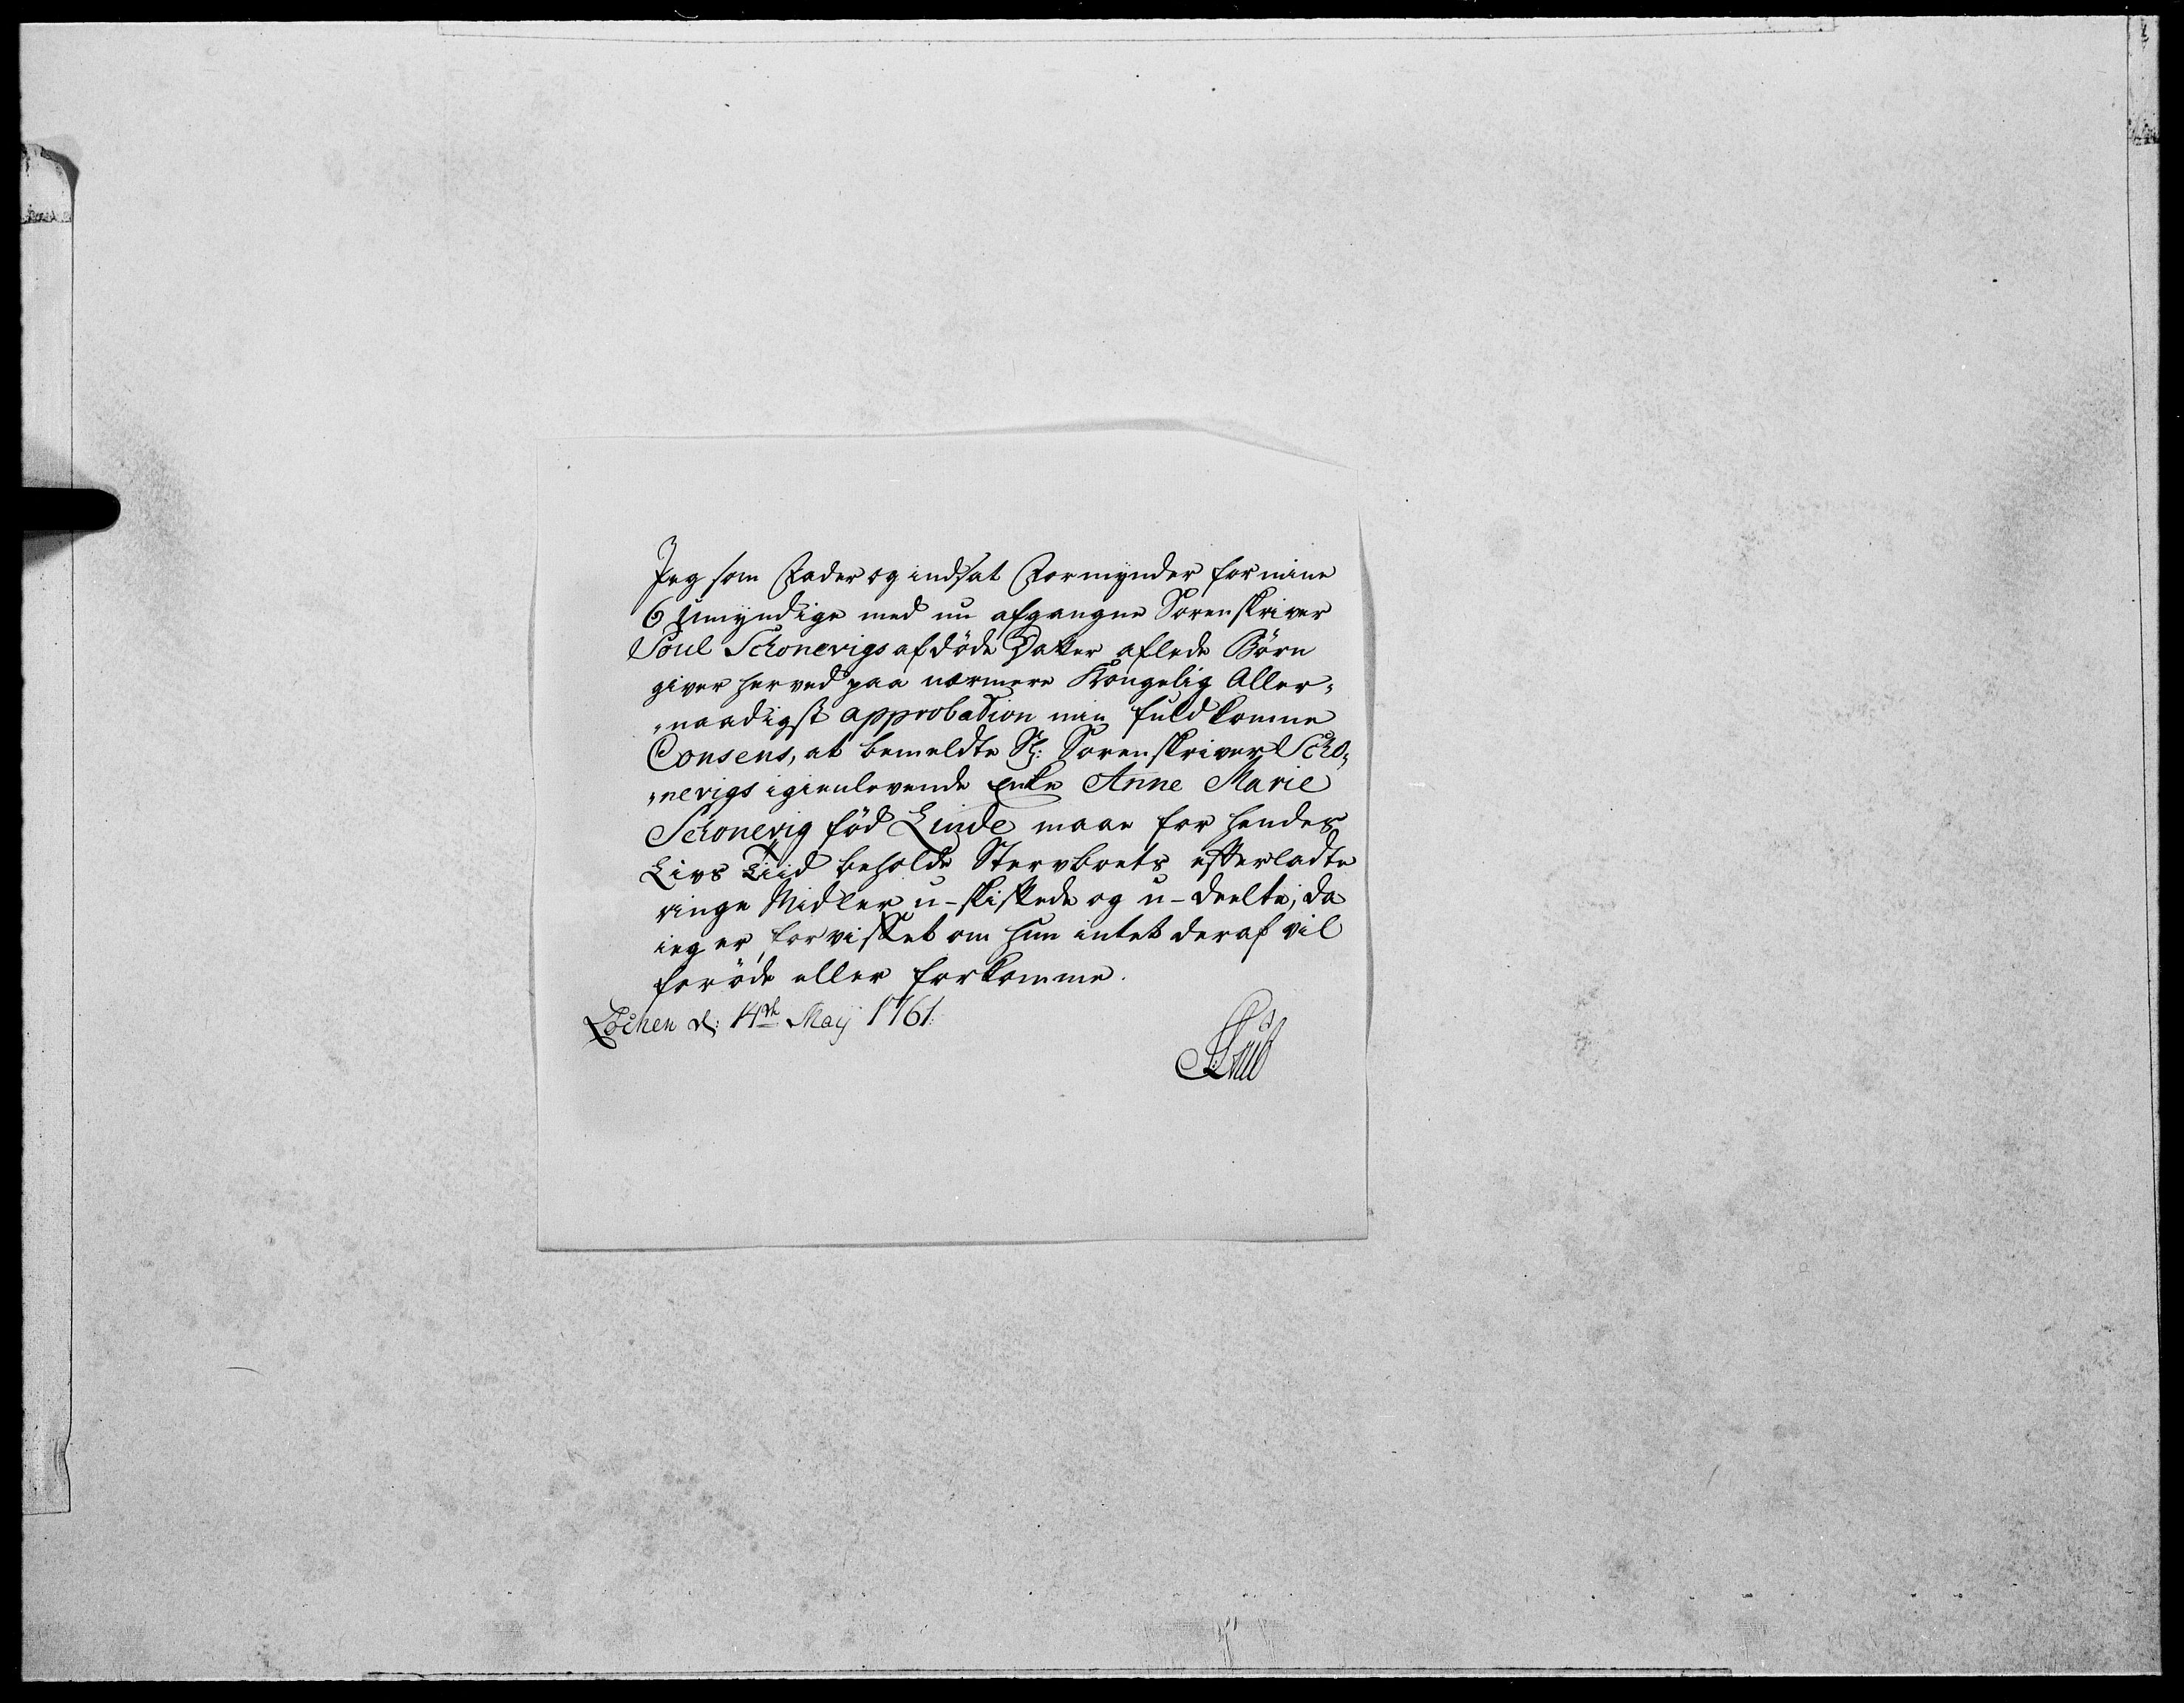 Jeg som Fader og indsat Formynder for mine
6 Umyndige med nu afgangne Sorenskriver
Poul Schonevigs afdöde Datter aflede Börn
giver herved paa nærmere Kongelig Aller-
„naadigst approbation min fuldkomne
Consens, at bemeldte Sl: Sorenskriver Scho,
„nevigs igienlevende Enke Anne Marie
Schonevig föd Linde maae for hendes
Livs Tiid beholde Stervboets efterladte
ringe Midler u-skiftede og u-deelte, da
ieg er forvisset om hun intet deraf vil
foröde eller forkomme.
Löchen d: 14de Maij 1761: